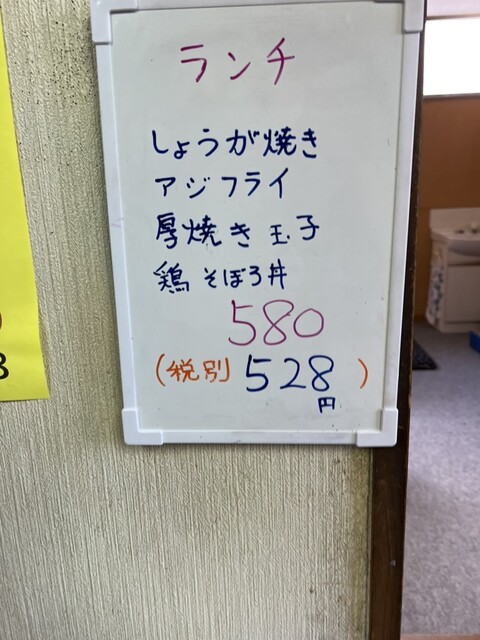 ランチ
しょうが焼き
アジフライ
厚焼き玉子
鶏そぼろ丼
580
(税別 528)
円